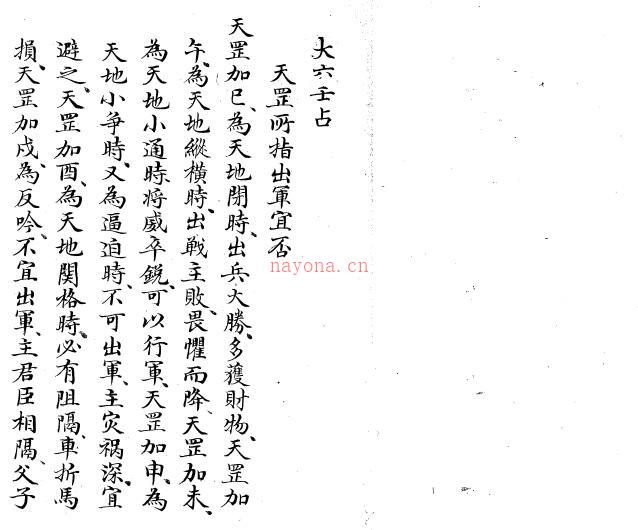 大六壬占
天罡所指出軍宜否
天罡加巳、為天地閉時、出兵大勝、多獲財物、天罡加
午、為天地縱橫時、出戰主敗、畏懼而降、天罡加未、
為天地小通時、將威卒銳、可以行軍、天罡加申、為
天地小爭時、又為逼迫時、不可出軍、主灾祸深、宜
避之、天罡加酉、為天地関格時、必有阻隔、車折馬
損、天罡加戌、為反吟、不宜出軍、主君臣相隔、父子
nayona.cn